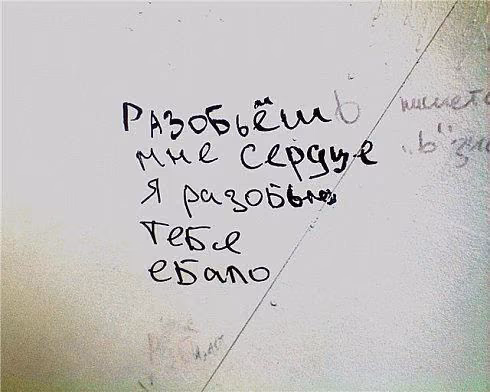 РАЗОБЬЁШЬ
мне сердце
я разобью
тебе
ебало
пишетс
„Ь"